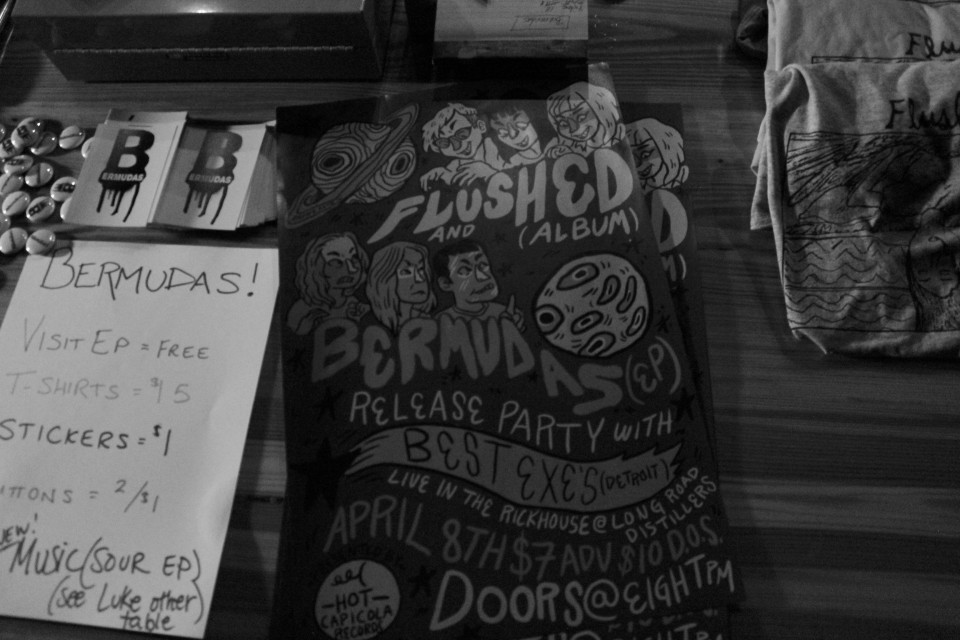 B
ERMUDAS
B
ERMUDAS
BERMUDAS!
VISIT EP = FREE
T-SHIRTS = $15
STICKERS = $1
= 2/$1
MUSIC (SOUR EP)
(See Luke other
table)
FLUSHED
AND (ALBUM)
BERMUDAS (EP)
RELEASE PARTY WITH
BEST EXE'S (DETROIT)
LIVE IN THE RICKHOUSE @ LONG ROAD
DISTILLERS
APRIL 8TH $7 ADV $10 D.O.S.
DOORS @ EIGHT PM
HOT
CAPICOLA
RECORDS
D
M)
Flu
Flush